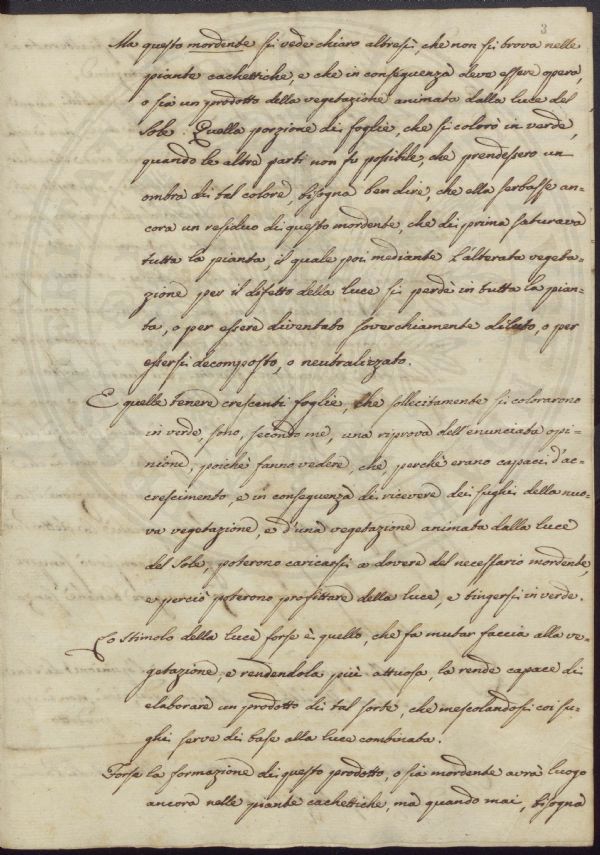 3
Ma questo mordente si vede chiaro altresì, che non si trova nelle
piante cachettiche, e che in conseguenza deve essere opera,
o sia un prodotto della vegetazione animata dalla luce del
Sole. Quella porzione di foglie, che si colorò in verde,
quando le altre parti non fu possibile, che prendessero un
ombra di tal colore, bisogna ben dire, che ella serbasse an-
cora un residuo di questo mordente, che di prima saturava
tutta la pianta, il quale poi mediante l'alterata vegeta-
zione per il difetto della luce si perdè in tutta la pian-
ta, o per essere diventato soverchiamente diluto, o per
essersi decomposto, o neutralizzato.
E quelle tenere crescenti foglie, che sollecitamente si colorarono
in verde, sono, secondo me, una riprova dell'enunciata opi-
nione, poichè fanno vedere, che, perchè erano capaci d'ac-
crescimento, e in conseguenza di ricevere dei sughi della nuo-
va vegetazione, e d'una vegetazione animata dalla luce
del Sole, poterono caricarsi a dovere del necessario mordente,
e perciò poterono profittare della luce, e tingersi in verde.
Lo stimolo della luce forse è quello, che fa mutar faccia alla ve-
getazione, e rendendola più attuosa, la rende capace di
elaborare un prodotto di tal sorte, che mescolandosi coi su-
ghi serve di base alla luce combinata.
Forse la formazione di questo prodotto, o sia mordente avrà luogo
ancora nelle piante cachettiche, ma quando mai, bisogna